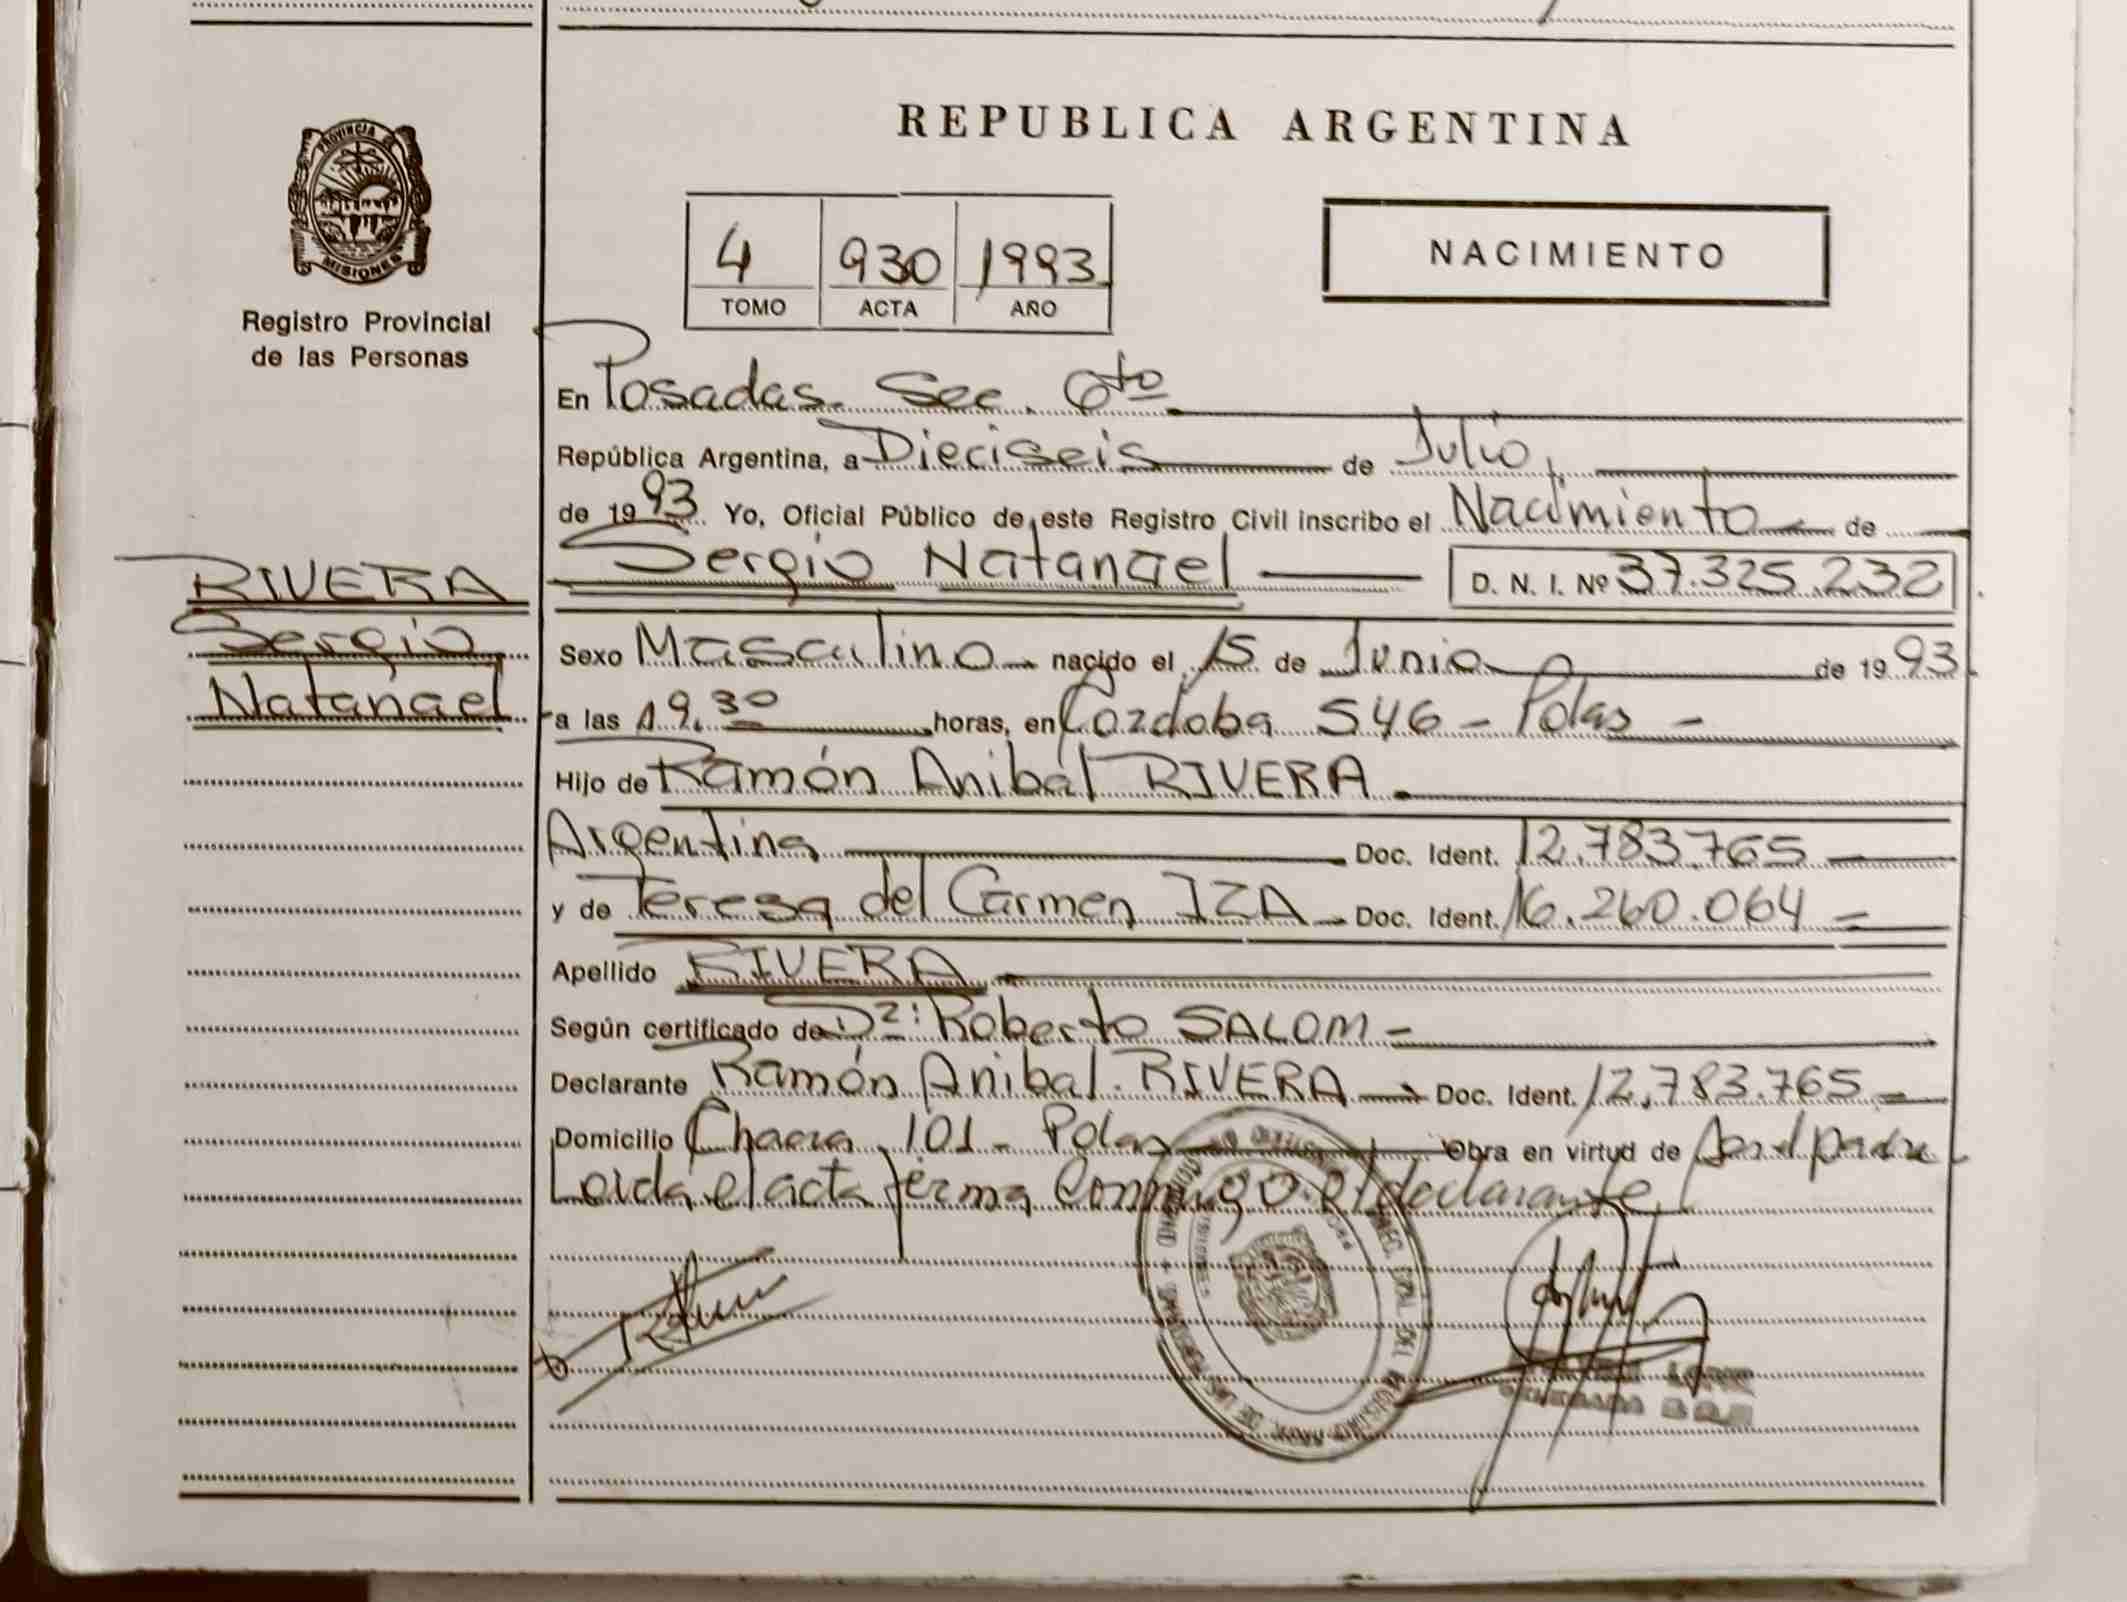 REPUBLICA ARGENTINA
PROVINCIA DE
MISIONES
Registro Provincial
de las Personas
4 930 1993
TOMO ACTA AÑO
NACIMIENTO
En Posadas. Sec. 6to
República Argentina, a Dieciseis de Julio,
de 1993 Yo, Oficial Público de este Registro Civil inscribo el Nacimiento de
Sergio Natanael D. N. I. Nº 37.325.232
RIVERA
Sergio
Natanael
Sexo Masculino nacido el 15 de Junio de 1993
a las 19.30 horas, en Córdoba 546 - Pdas -
Hijo de Ramón Anibal RIVERA.
Argentina Doc. Ident. 12.783.765
y de Teresa del Carmen IZA Doc. Ident. 16.260.064
Apellido RIVERA
Según certificado de Dr: Roberto SALOM
Declarante Ramón Anibal RIVERA Doc. Ident. 12.783.765
Domicilio Chacra 101 - Pdas Obra en virtud de Ser el padre
Leida el acta firma conmigo el declarante